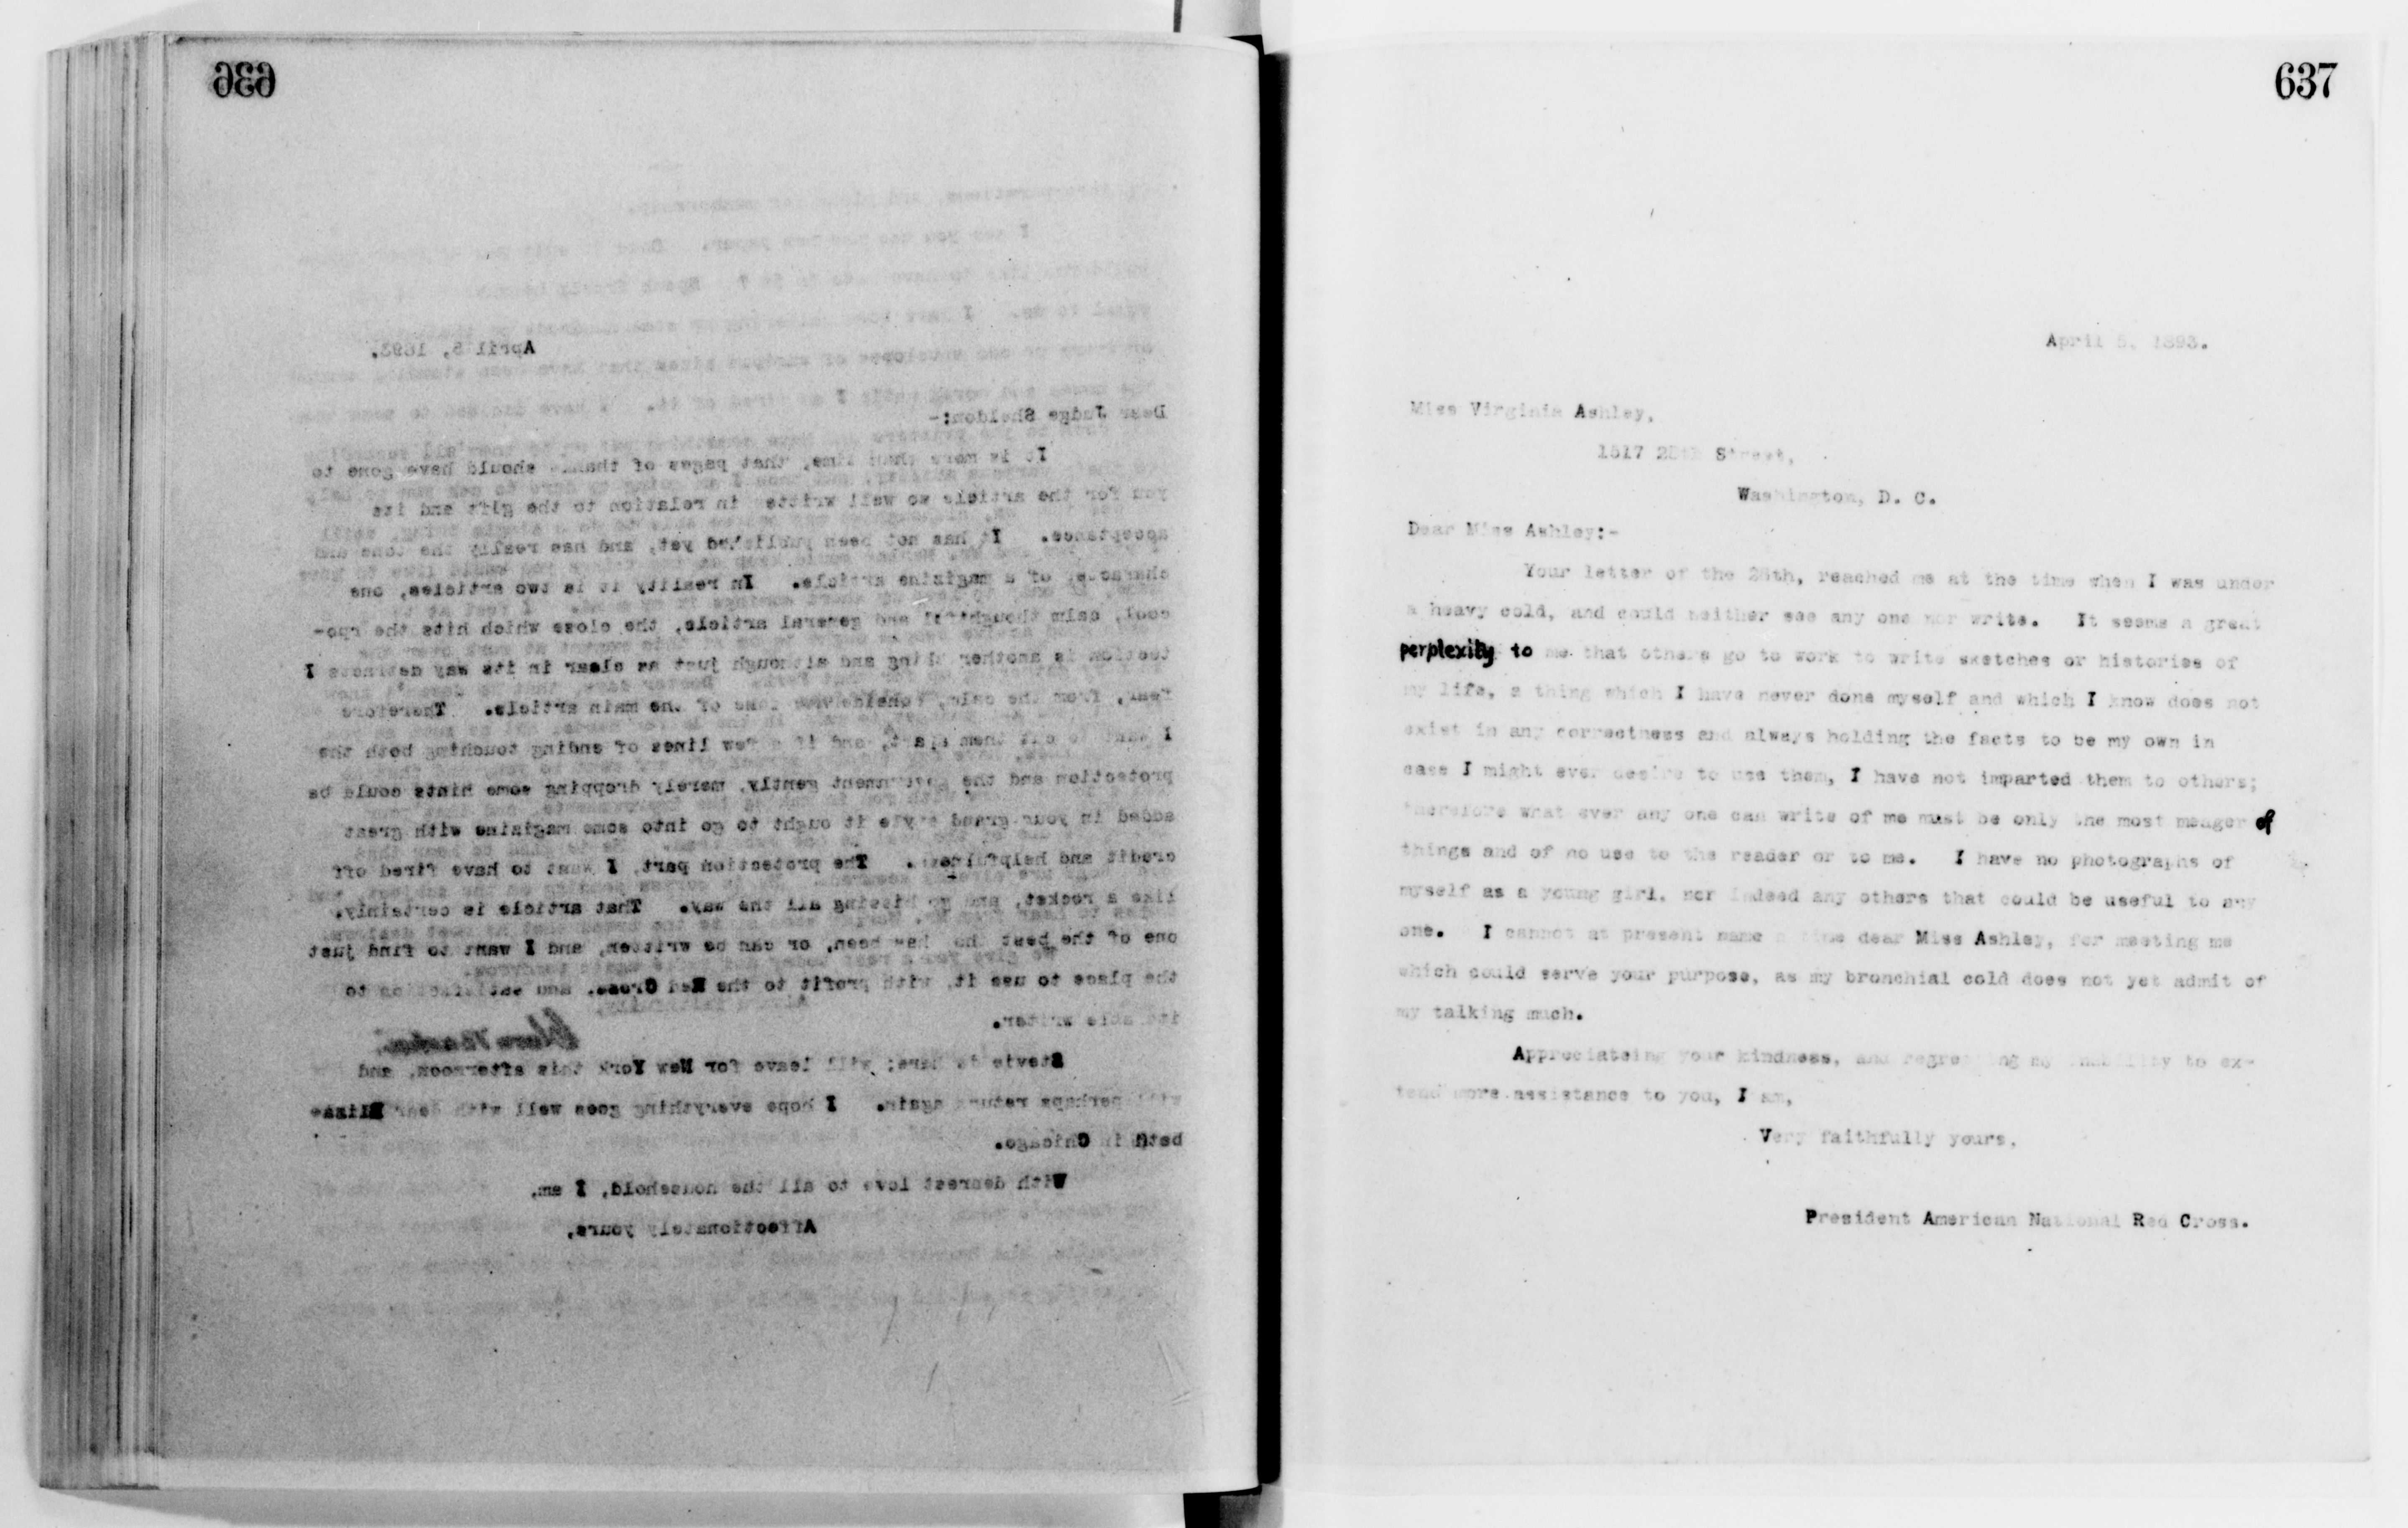 636
April 5, 1893.
Dear Judge Sheldon:-
It is more than time, that pages of thanks should have gone to
you for the article so well written in relation to the gift and its
acceptance. It has not been published yet, and has really the tone and
character of a magizine article. In reality it is two articles, one
cool, calm thoughtful and general article, the close which hits the
tection is another thing and although just as clear in its way detracts I
fear, from the calm, tone of the main article. Therefore
I want to cut them apart, and if a few lines of ending touching both the
protection and the government gently, merely dropping some hints could be
added in your grand style it ought to go into some magizine with great
credit and helpfulness. The protection part, I want to have fired off
like a rocket, and go hissing all the way. That article is certainly,
one of the best that has been, or can be written, and I want to find just
the place to use it, with profit to the Red Cross, and satisfaction to
its able writer.
Stevie is here; will leave for New York this afternoon, and
will perhaps return again. I hope everything goes well with dear Eliza-
beth in Chicago.
With dearest love to all the household, I am,
Affectionately yours,
637
April 5, 1893.
Miss Virginia Ashley,
1517 28th Street,
Washington, D. C.
Dear Miss Ashley:-
Your letter of the 28th, reached me at the time when I was under
a heavy cold, and could neither see any one nor write. It seems a great
perplexity to me that others go to work to write sketches or histories of
my life, a thing which I have never done myself and which I know does not
exist in any correctness and always holding the facts to be my own in
case I might ever desire to use them, I have not imparted them to others;
therefore what ever any one can write of me must be only the most meager of
things and of no use to the reader or to me. I have no photographs of
myself as a young girl, nor indeed any others that could be useful to any
one. I cannot at present name a time dear Miss Ashley, for meeting me
which could serve your purpose, as my bronchial cold does not yet admit of
my talking much.
Appreciateing your kindness, and regretting my inability to ex-
tend more assistance to you, I am,
Very faithfully yours,
President American National Red Cross.